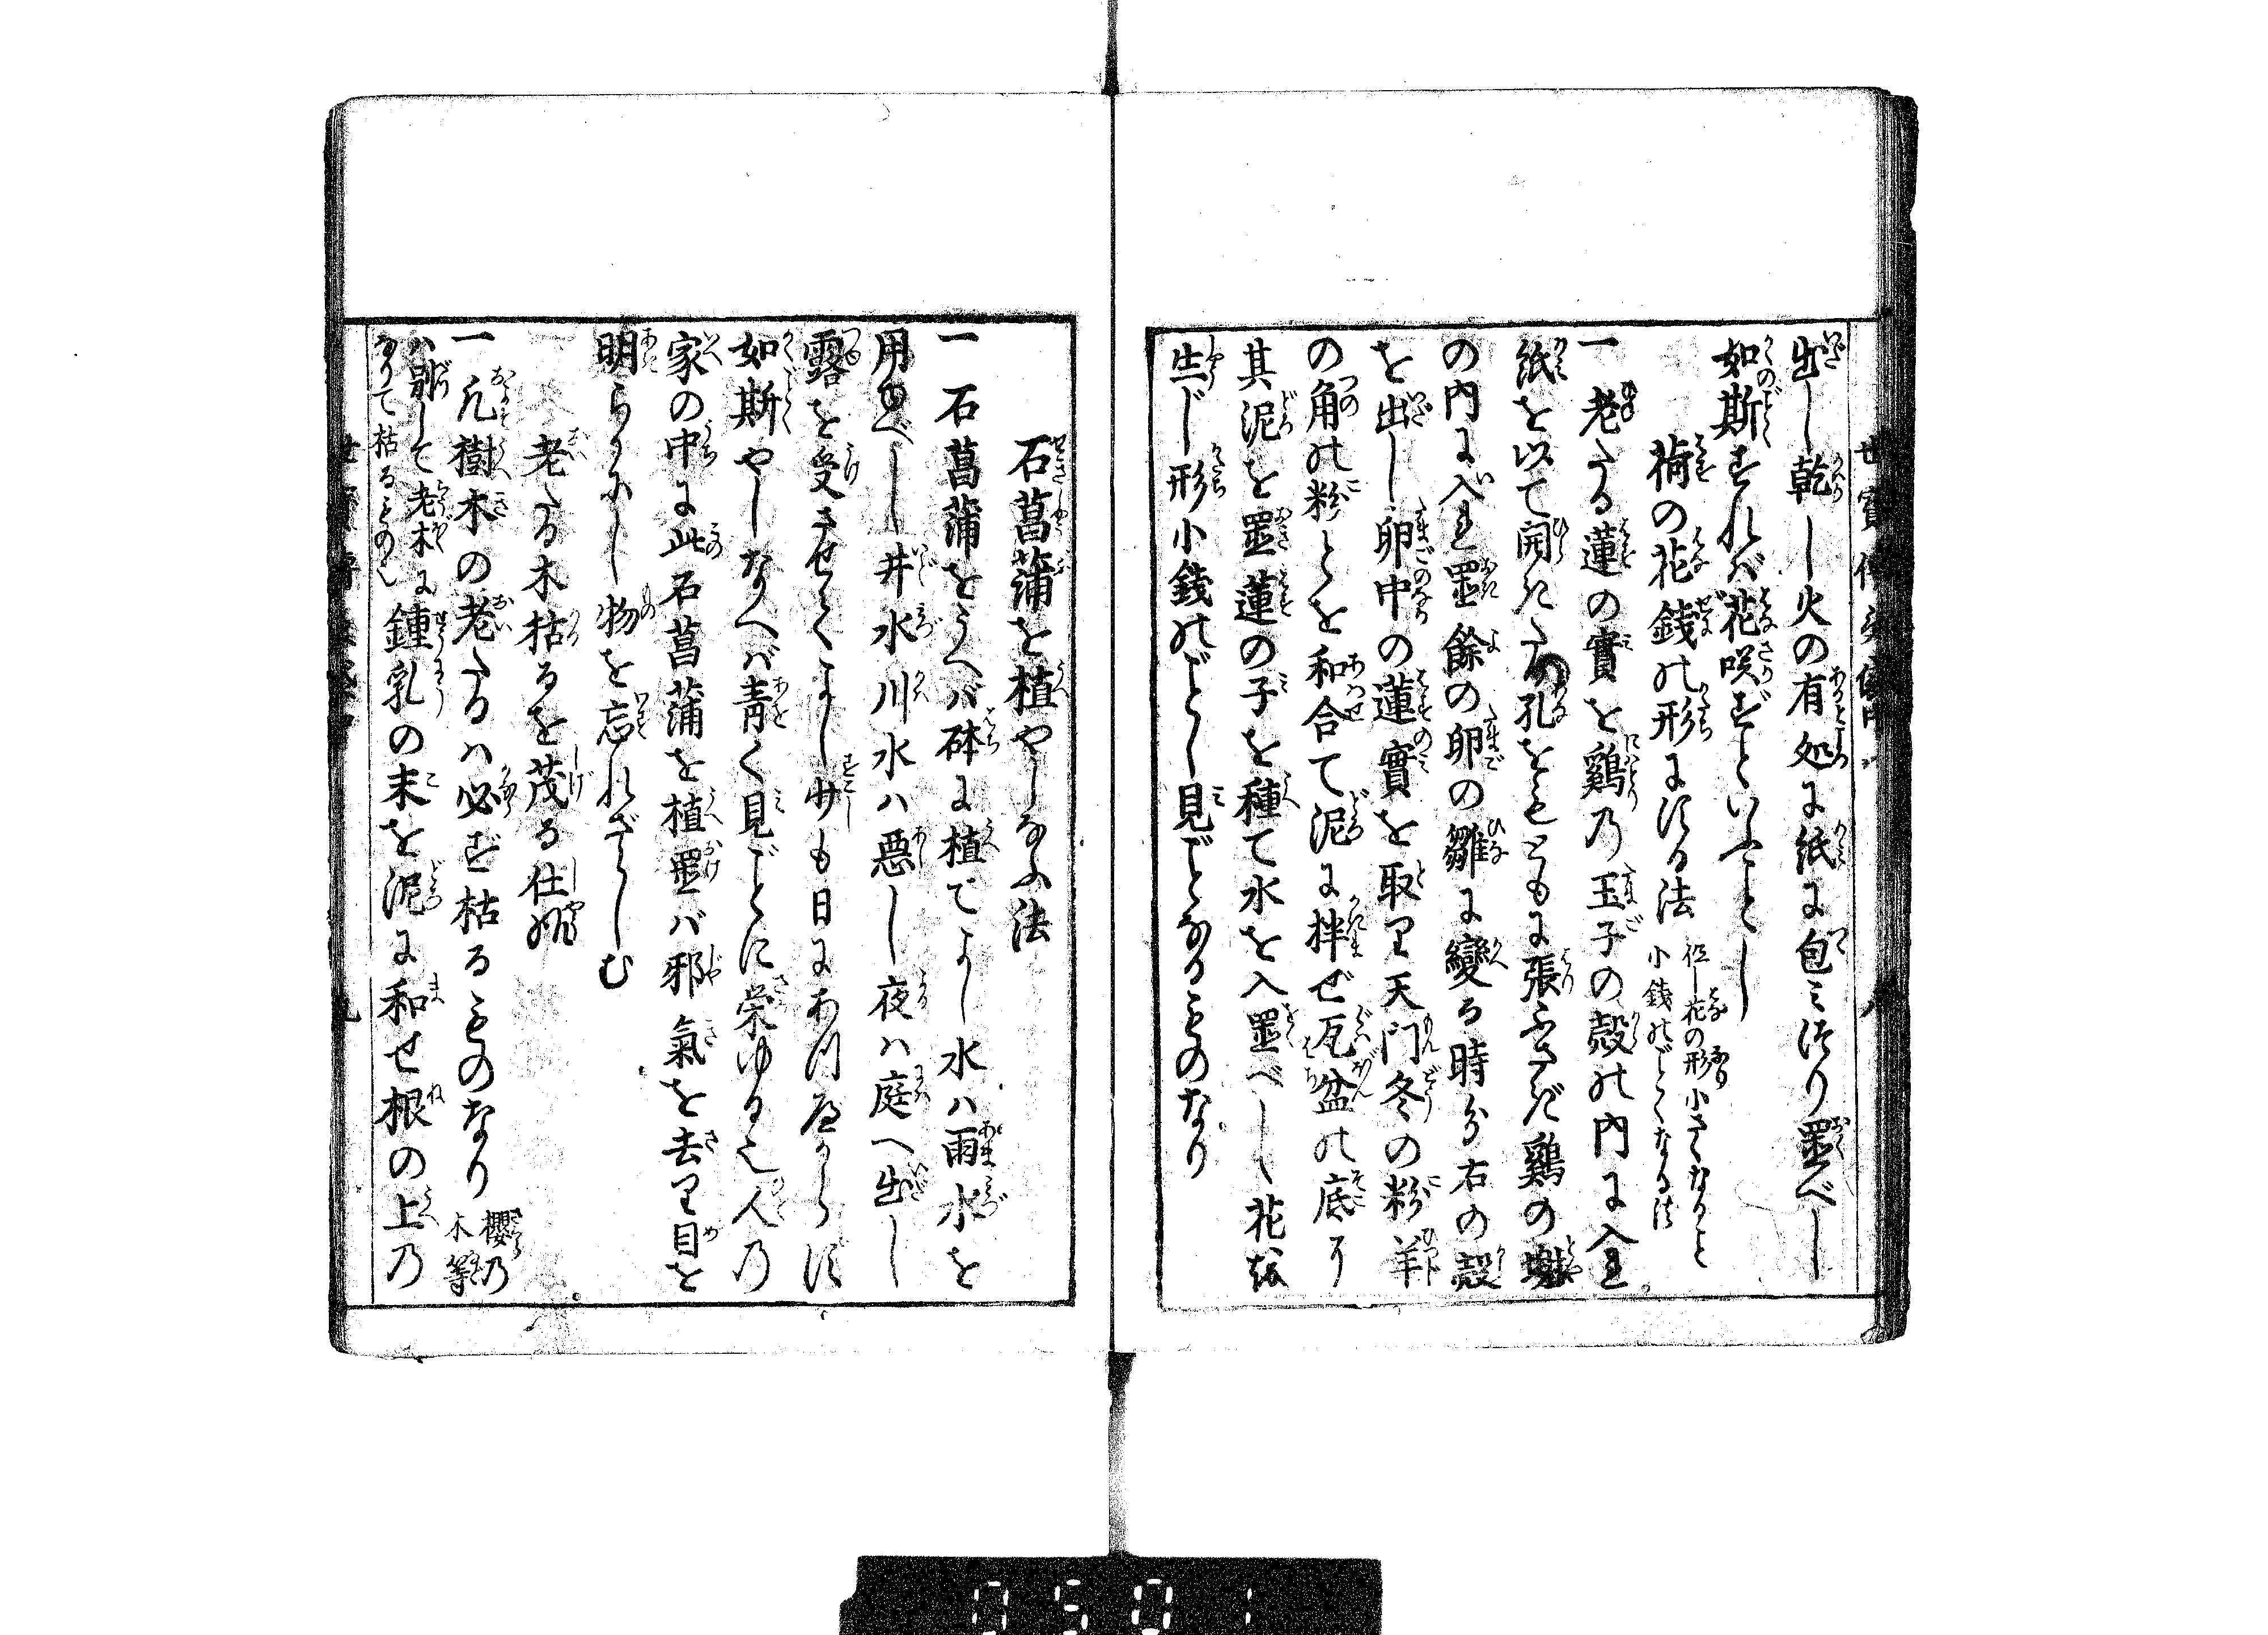 出し乾し火の有処に紙に包みほり置べし
如斯すれば花咲ずといふことし
荷の花銭の形にする法
但し花の形小さくなること
小銭のごとくなる法
一老たる蓮の實を鷄の玉子の殻の内に入れ
紙を以て開きたる孔をもともに張ふさぎ鷄の
の内に入れ置餘の卵の雛に變る時分右の殻
を出し卵中の蓮實を取り天門冬の粉羊
の角の粉とを和合て泥に拌ぜ瓦盆の底に
其泥を置蓮の子を種て水を入置べし花を
生じ形小銭のごとし見ごとなるものなり
石菖蒲を植やしなふ法
一石菖蒲をうへば砵に植てよし水ハ雨水を
用ゆべし井水川水ハ悪し夜ハ庭へ出し
露を受させてよし少も日にあつべからず
如斯やしなへば青く見ごとに栄ゆる也人の
家の中に此石菖蒲を植置バ邪氣を去り目を
明らかにし物を忘れざらしむ
老たる木枯るを茂る仕

一凡樹木の老たるハ必ず枯るものなり
櫻の
木等
ハ別して老木に
なりて枯るもの也
鍾乳の末を泥に和せ根の上の
0501